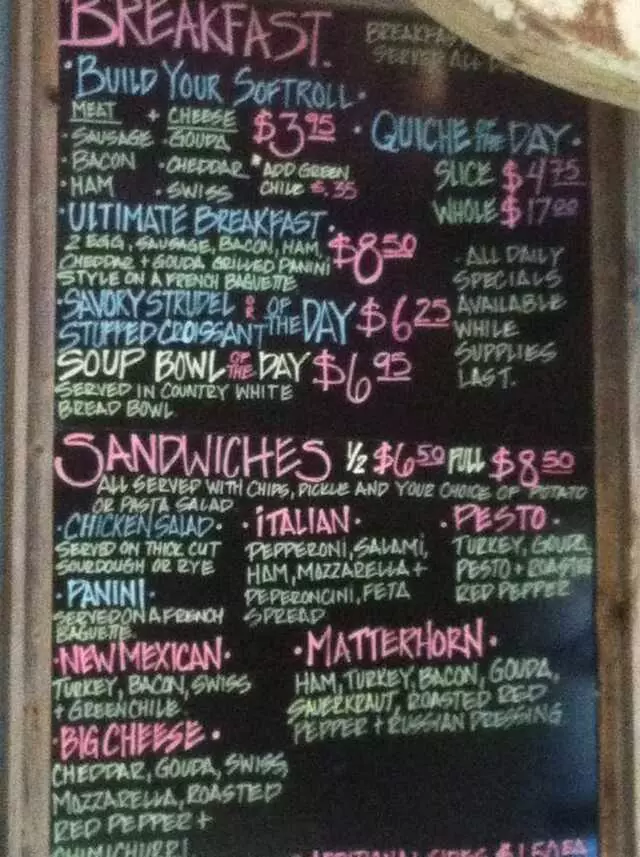 BREAKFAST.
SERVED ALL
· BUILD YOUR SOFTROLL ·
MEAT + CHEESE $3.95
· SAUSAGE · GOUDA
· BACON · CHEDDAR * ADD GREEN
· HAM · SWISS CHILE $.35
· QUICHE OF THE DAY ·
SLICE $4.75
WHOLE $17.00
· ULTIMATE BREAKFAST ·
2 EGG, SAUSAGE, BACON, HAM, $8.50
CHEDDAR + GOUDA GRILLED PANINI
STYLE ON A FRENCH BAGUETTE
· ALL DAILY
SPECIALS
AVAILABLE
WHILE
SUPPLIES
LAST.
· SAVORY STRUDEL OR OF
STUFFED CROISSANT THE DAY $6.25
SOUP BOWL OF THE DAY $6.95
SERVED IN COUNTRY WHITE
BREAD BOWL
SANDWICHES 1/2 $6.50 FULL $8.50
ALL SERVED WITH CHIPS, PICKLE AND YOUR CHOICE OF POTATO
OR PASTA SALAD
· CHICKEN SALAD ·
SERVED ON THICK CUT
SOURDOUGH OR RYE
· ITALIAN ·
PEPPERONI, SALAMI,
HAM, MOZZARELLA +
PEPERONCINI, FETA
SPREAD
· PESTO ·
TURKEY, GOUDA,
PESTO + ROASTED
RED PEPPER
· PANINI ·
SERVED ON A FRENCH
BAGUETTE
· NEW MEXICAN ·
TURKEY, BACON, SWISS
+ GREEN CHILE
· MATTERHORN ·
HAM, TURKEY, BACON, GOUDA,
SAUERKRAUT, ROASTED RED
PEPPER + RUSSIAN DRESSING
· BIG CHEESE ·
CHEDDAR, GOUDA, SWISS
MOZZARELLA, ROASTED
RED PEPPER +
CHIMICHURRI
ADDITIONAL SIDES $1.50 EA